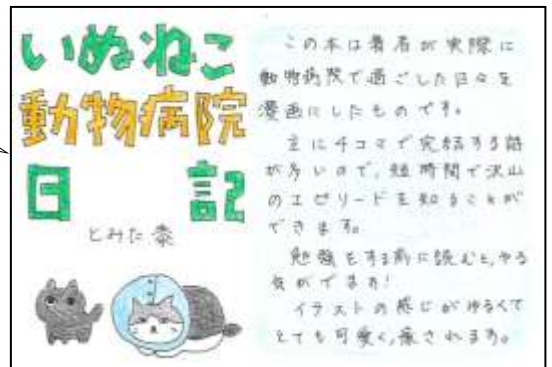 いぬねこ
動物病院
日記
とみた黍
この本は著者が実際に
動物病院で過ごした日々を
漫画にしたものです。
主に4コマで完結する話
が多いので、短時間で沢山
のエピソードを知ることが
できます。
勉強をする前に読むと、やる
気がでます!
イラストの感じがゆるくて
とても可愛く、癒されます。